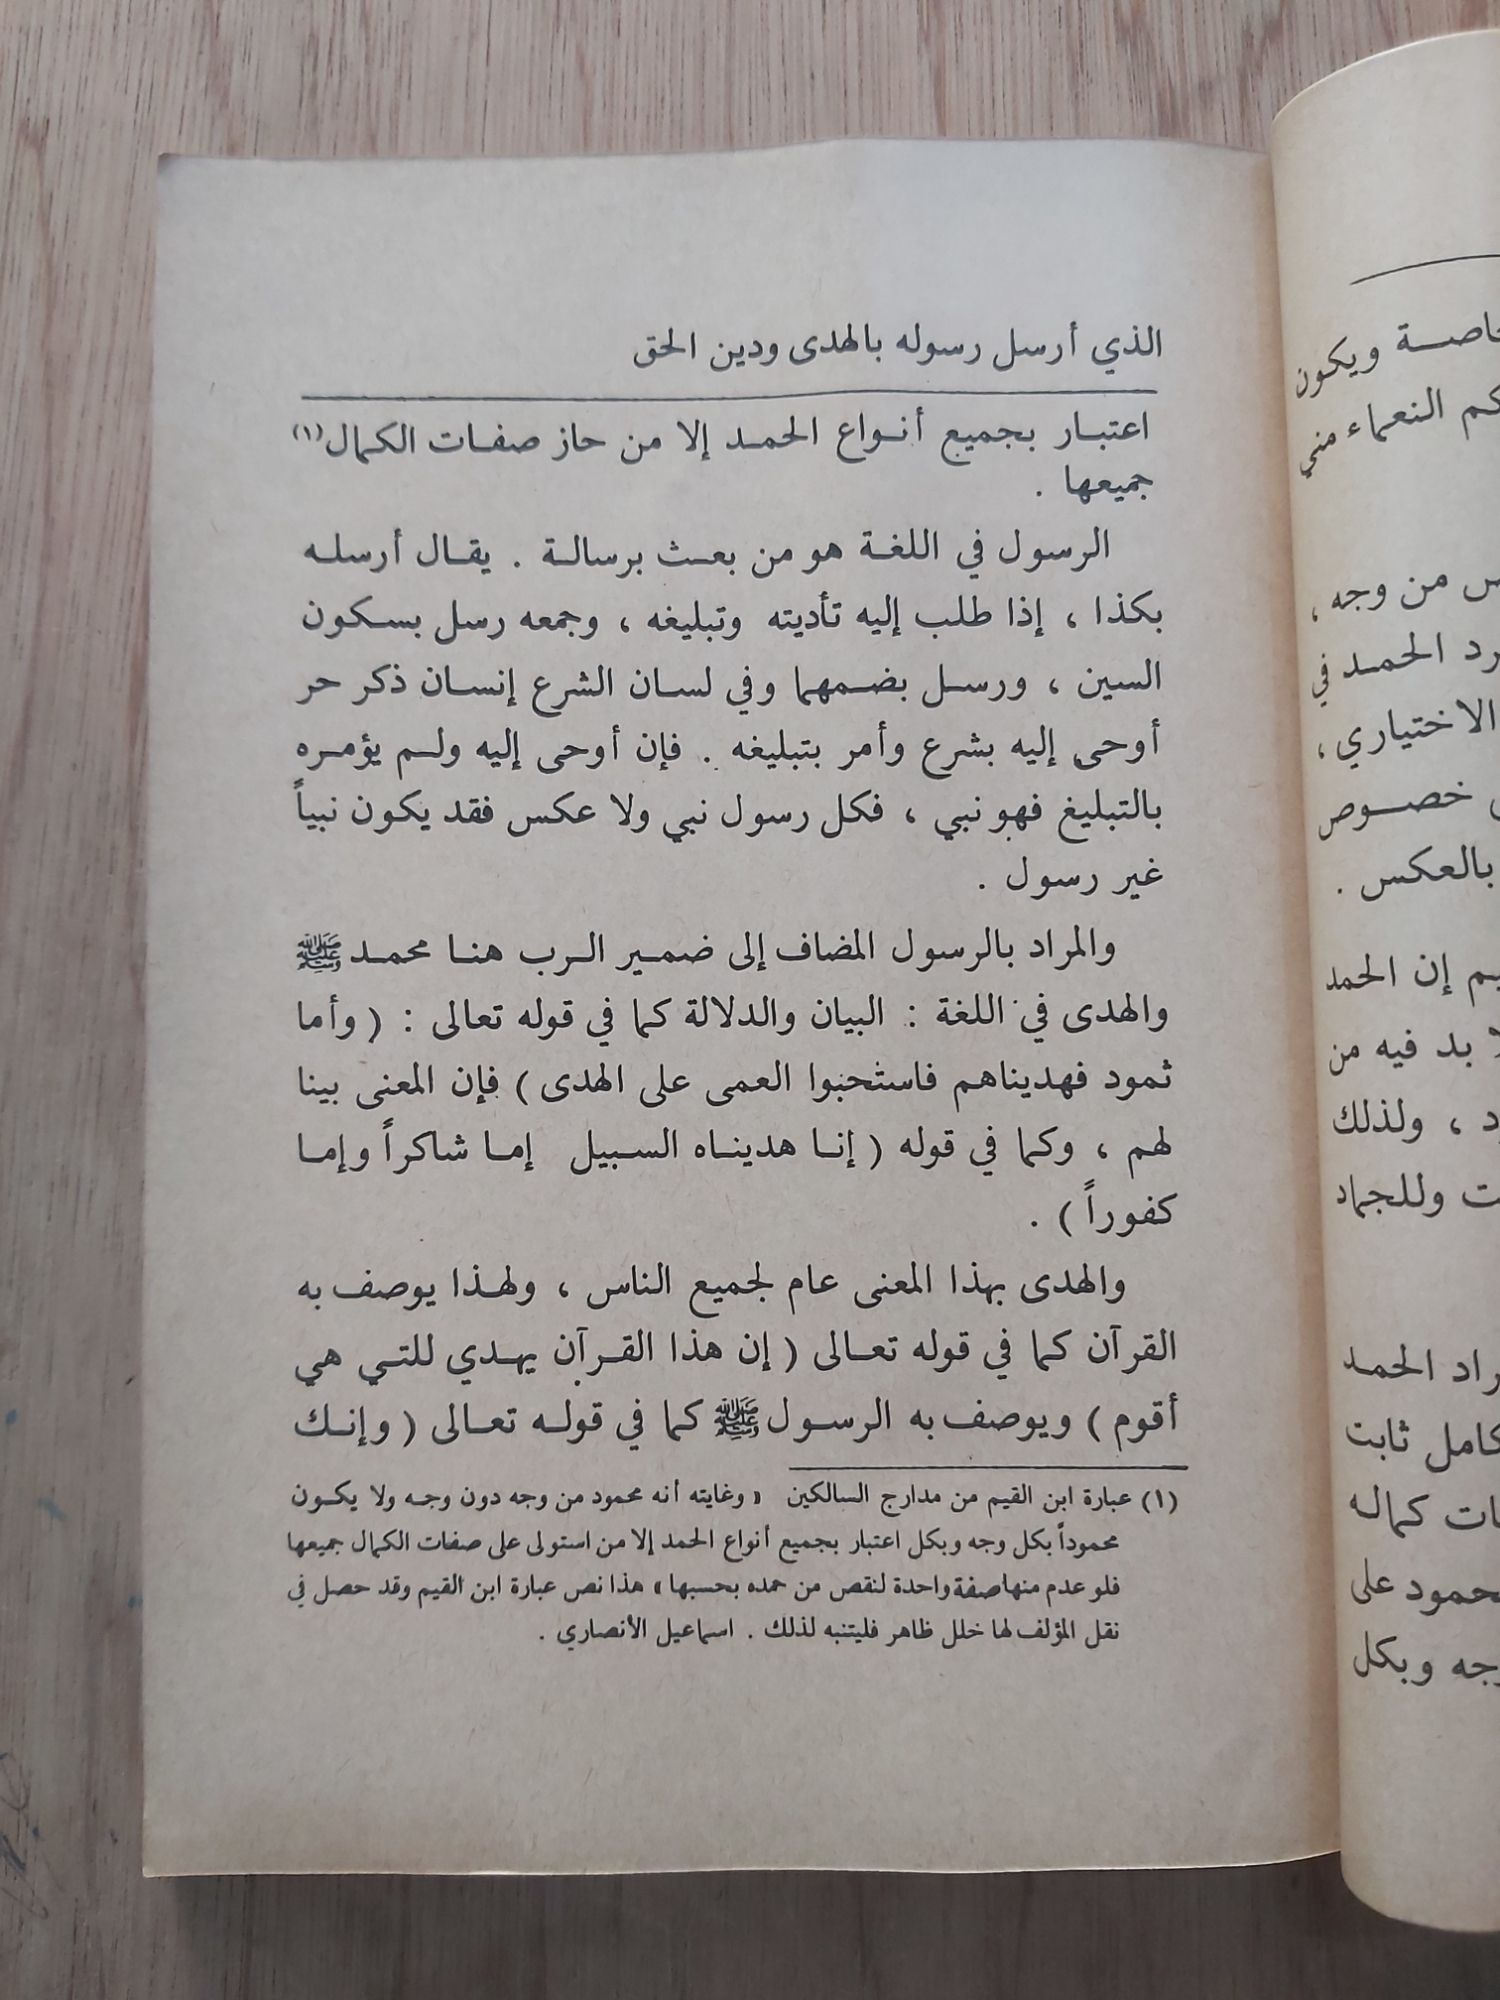 الذي أرسل رسوله بالهدى ودين الحق
اعتبار بجميع أنواع الحمد إلا من حاز صفات الكمال(١)
جميعها .
الرسول في اللغة هو من بعث برسالة . يقال أرسله
بكذا ، إذا طلب إليه تأديته وتبليغه ، وجمعه رسل بسكون
السين ، ورسل بضمهما وفي لسان الشرع إنسان ذكر حر
أوحى إليه بشرع وأمر بتبليغه . فإن أوحى إليه ولم يؤمره
بالتبليغ فهو نبي ، فكل رسول نبي ولا عكس فقد يكون نبياً
غير رسول .
والمراد بالرسول المضاف إلى ضمير الرب هنا محمد ﷺ
والهدى في اللغة : البيان والدلالة كما في قوله تعالى : ( وأما
ثمود فهديناهم فاستحبوا العمى على الهدى ) فإن المعنى بينا
لهم ، وكما في قوله ( إنا هديناه السبيل إما شاكراً وإما
كفوراً ) .
والهدى بهذا المعنى عام لجميع الناس ، ولهذا يوصف به
القرآن كما في قوله تعالى ( إن هذا القرآن يهدي للتي هي
أقوم ) ويوصف به الرسول ﷺ كما في قوله تعالى ( وإنك
(١) عبارة ابن القيم من مدارج السالكين « وغايته أنه محمود من وجه دون وجه ولا يكون
محموداً بكل وجه وبكل اعتبار بجميع أنواع الحمد إلا من استولى على صفات الكمال جميعها
فلو عدم منها صفة واحدة لنقص من حمده بحسبها » هذا نص عبارة ابن القيم وقد حصل في
نقل المؤلف لها خلل ظاهر فليتنبه لذلك . اسماعيل الأنصاري .
ويكون
النعماء مني
من وجه ،
الحمد في
الاختياري ،
خصوص
بالعكس .
إن الحمد
بد فيه من
، ولذلك
وللجماد
الحمد
ثابت
كماله
على
وبكل